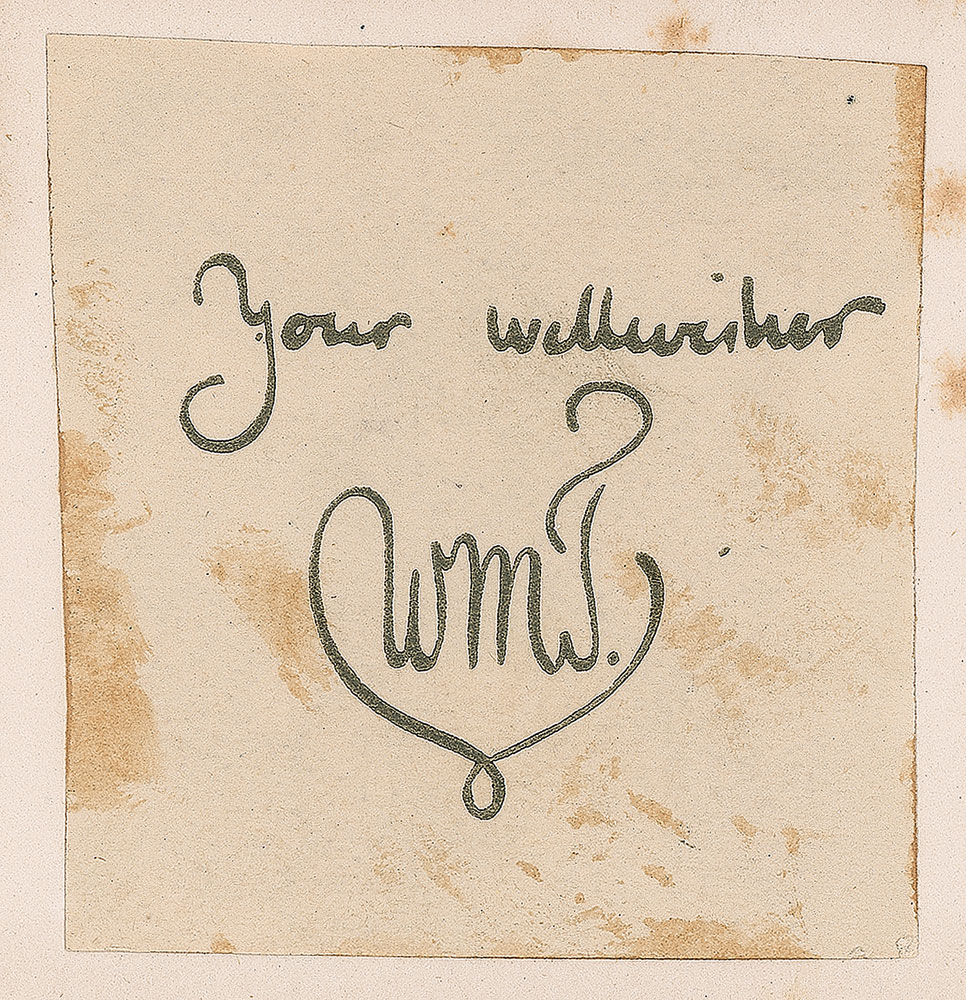 Your wellwisher
WMT.